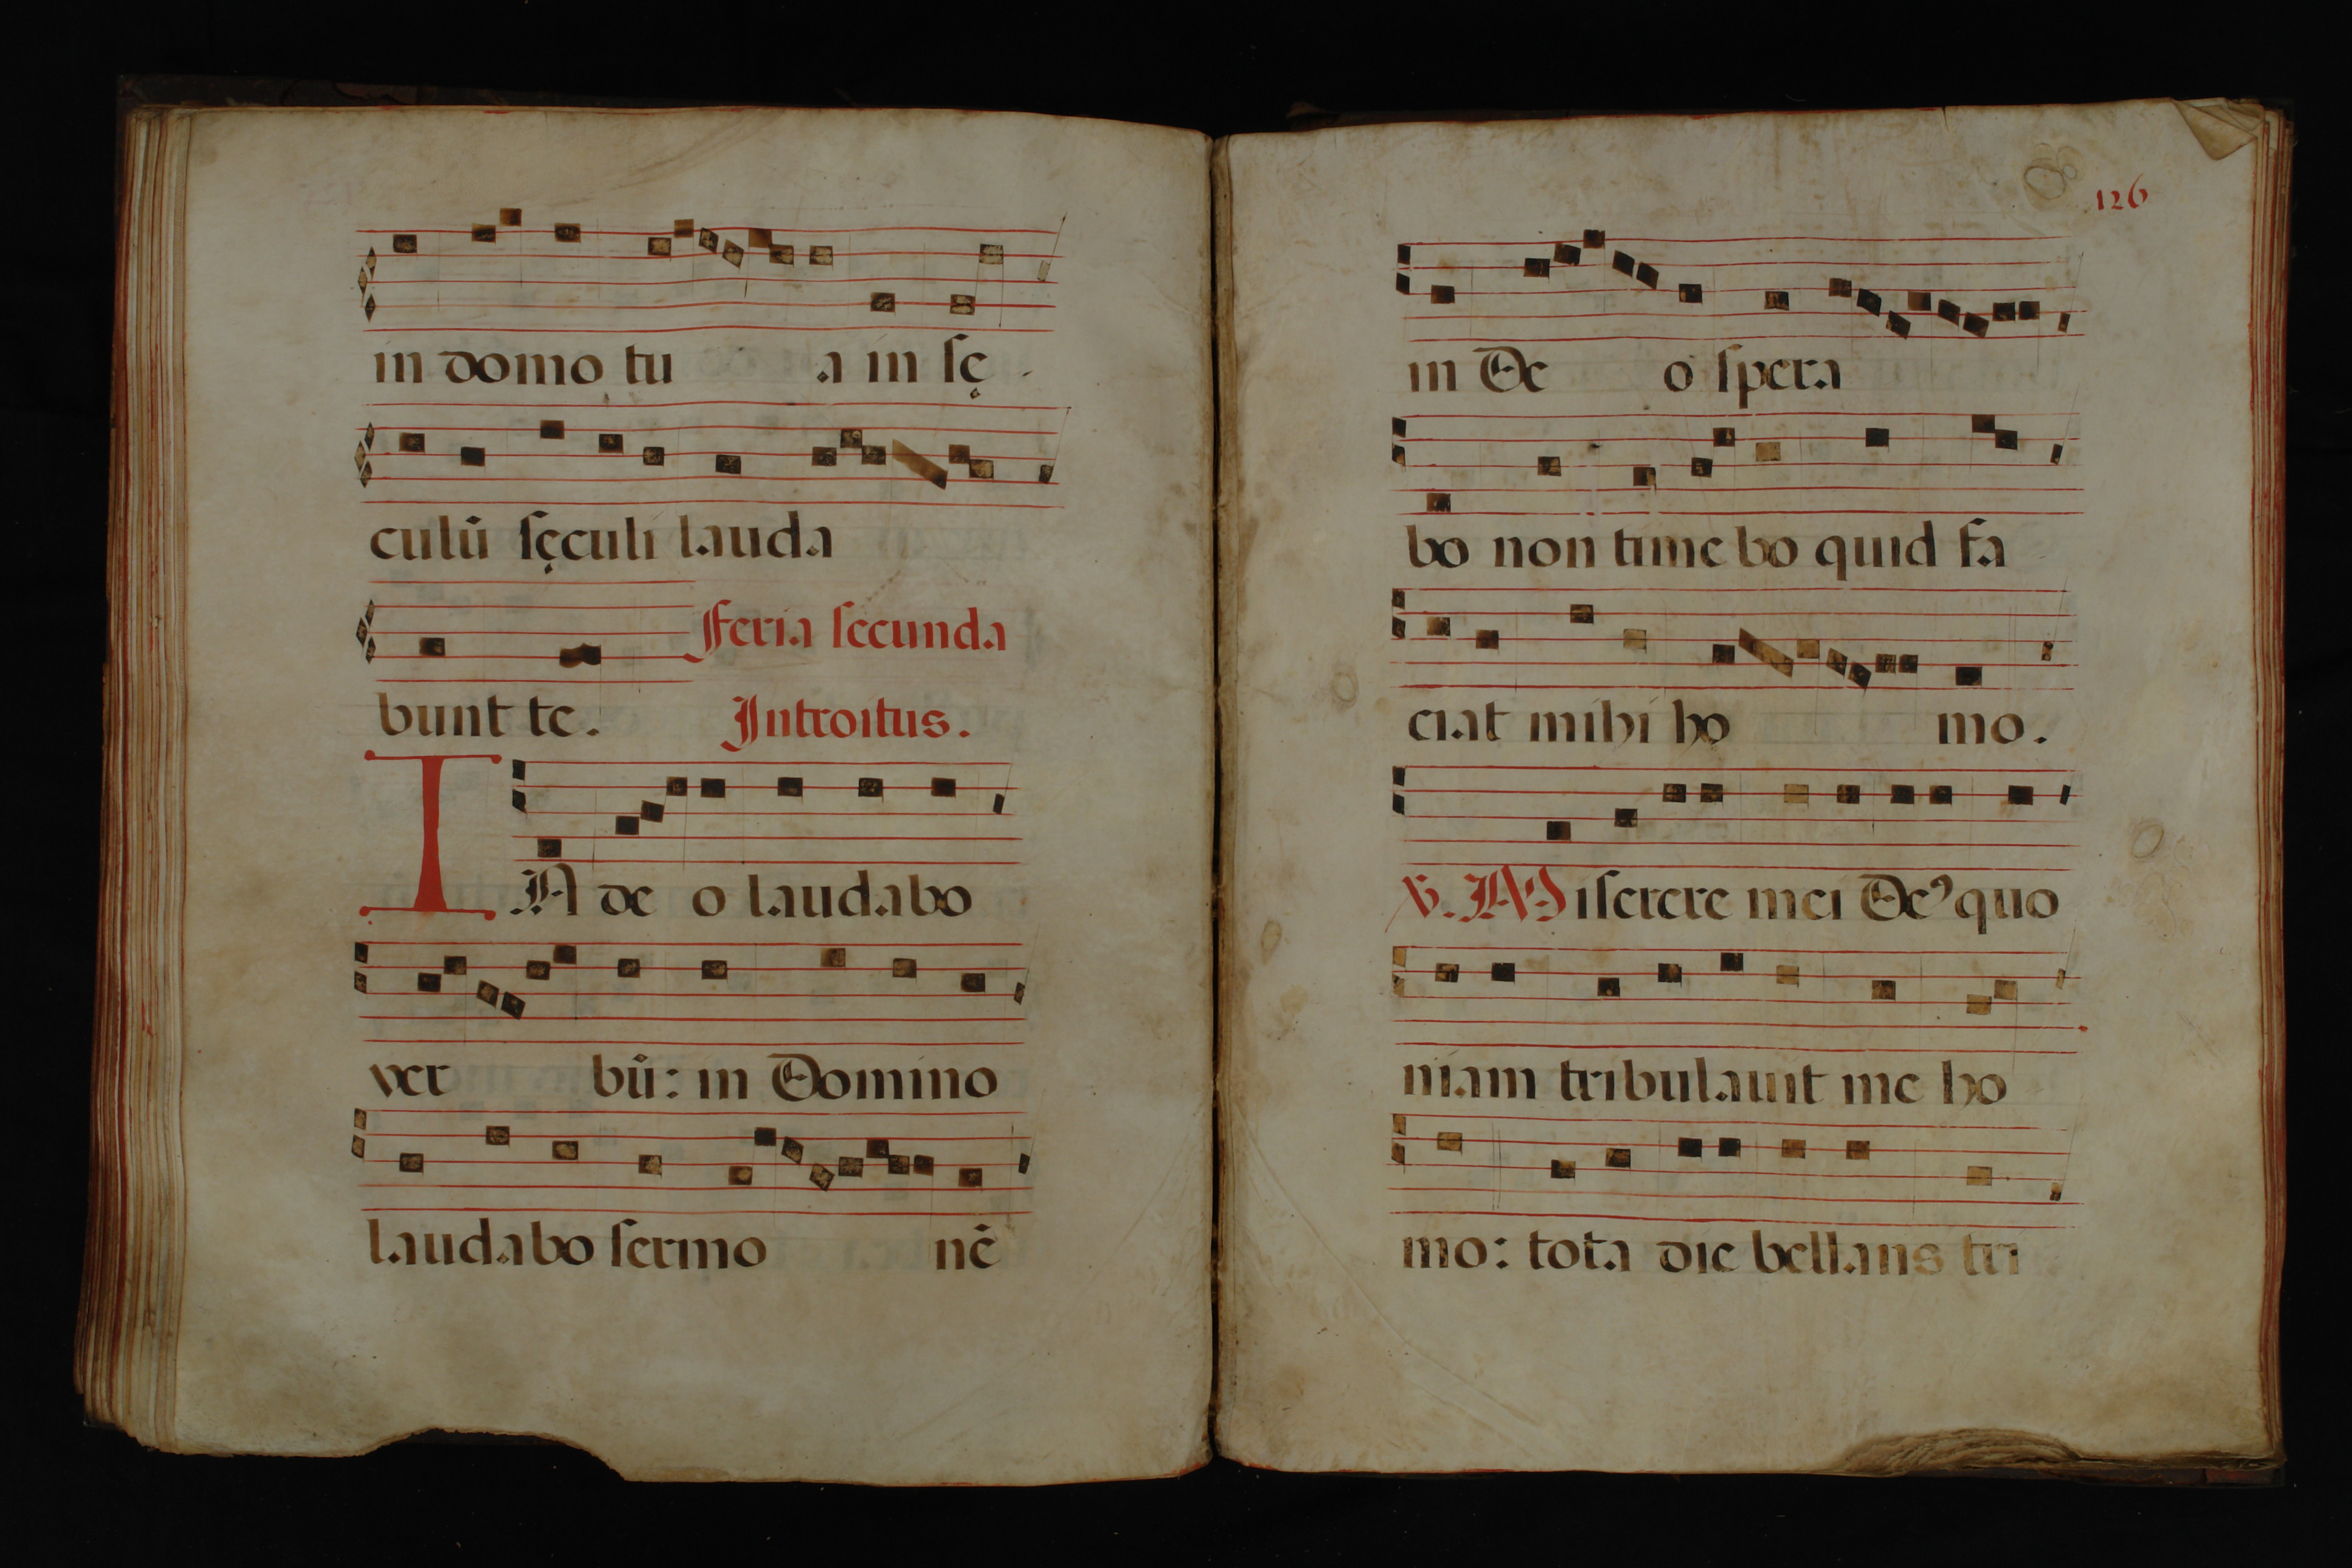 in domo tu a in sę
culū sęculi lauda
Feria secunda
bunt te. Introitus.
IN de o laudabo
ver bū: in Domino
laudabo sermo nē
126
in De o spera
bo non timebo quid fa
ciat mihi ho mo.
℣. Miserere mei De⁹ quo
niam tribulauit me ho
mo: tota die bellans tri